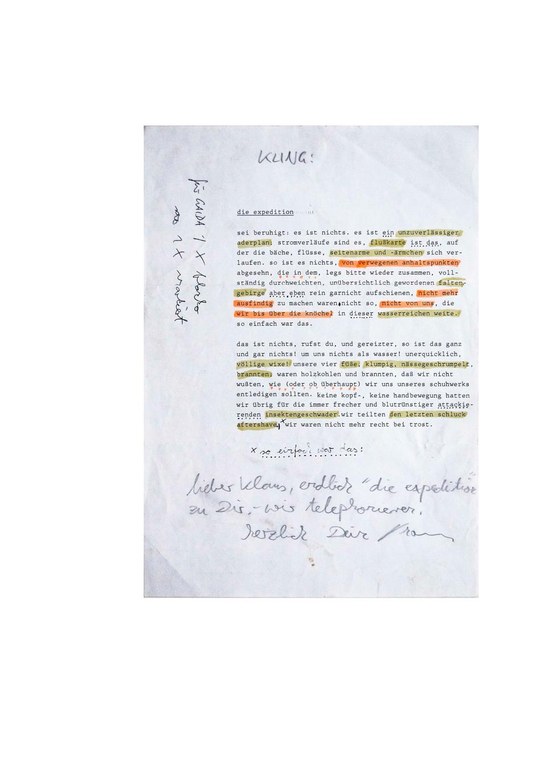 KLING:
für GAIDA 1 X blanko
1 X markiert
die expedition
sei beruhigt: es ist nichts. es ist ein unzuverlässiger
aderplan. stromverläufe sind es, flußkarte ist das, auf
der die bäche, flüsse, seitenarme und -ärmchen sich ver-
laufen. so ist es nichts, von verwegenen anhaltspunkten
abgesehn, die in dem, legs bitte wieder zusammen, voll-
ständig durchweichten, unübersichtlich gewordenen falten-
gebirge aber eben rein garnicht aufschienen, nicht mehr
ausfindig zu machen waren, nicht so, nicht von uns, die
wir bis über die knöchel in dieser wasserreichen weite.
so einfach war das.
das ist nichts, rufst du, und gereizter, so ist das ganz
und gar nichts! um uns nichts als wasser! unerquicklich,
völlige wixe! unsere vier füße, klumpig, nässegeschrumpelt,
brannten, waren holzkohlen und brannten, daß wir nicht
wußten, wie (oder ob überhaupt) wir uns unseres schuhwerks
entledigen sollten. keine kopf-, keine handbewegung hatten
wir übrig für die immer frecher und blutrünstiger attackie-
renden insektengeschwader. wir teilten den letzten schluck
aftershave, x wir waren nicht mehr recht bei trost.
x so einfach war das:
lieber Klaus, endlich "die expedition"
zu Dir. - wir telephonieren.
herzlich Dein